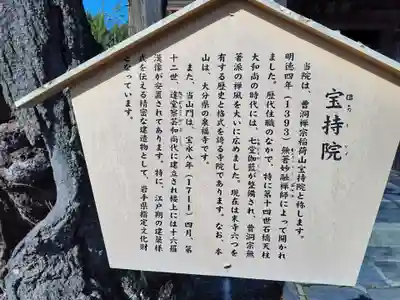 宝持院
ほうじいん
当院は、曹洞禅宗稲荷山宝持院と称します。
明徳四年(1393)無著妙融禅師によって開かれ
ました。歴代住職のなかで、特に第十四世石橋天柱
大和尚の時代には、七堂伽藍が整備され、曹洞宗無
著派の禅風を大いに広めました。現在は末寺六つを
有する歴史と格式を誇る寺院であります。なお、本
山は、大分県の泉福寺です。
また、当山門は、宝永八年(1711)四月、第
十二世、達室察荅和尚代に建立され楼上には十六羅
漢像が安置されてあります。特に、江戸期の建築様
式を伝える精密な建造物として、岩手県指定文化財
となっています。